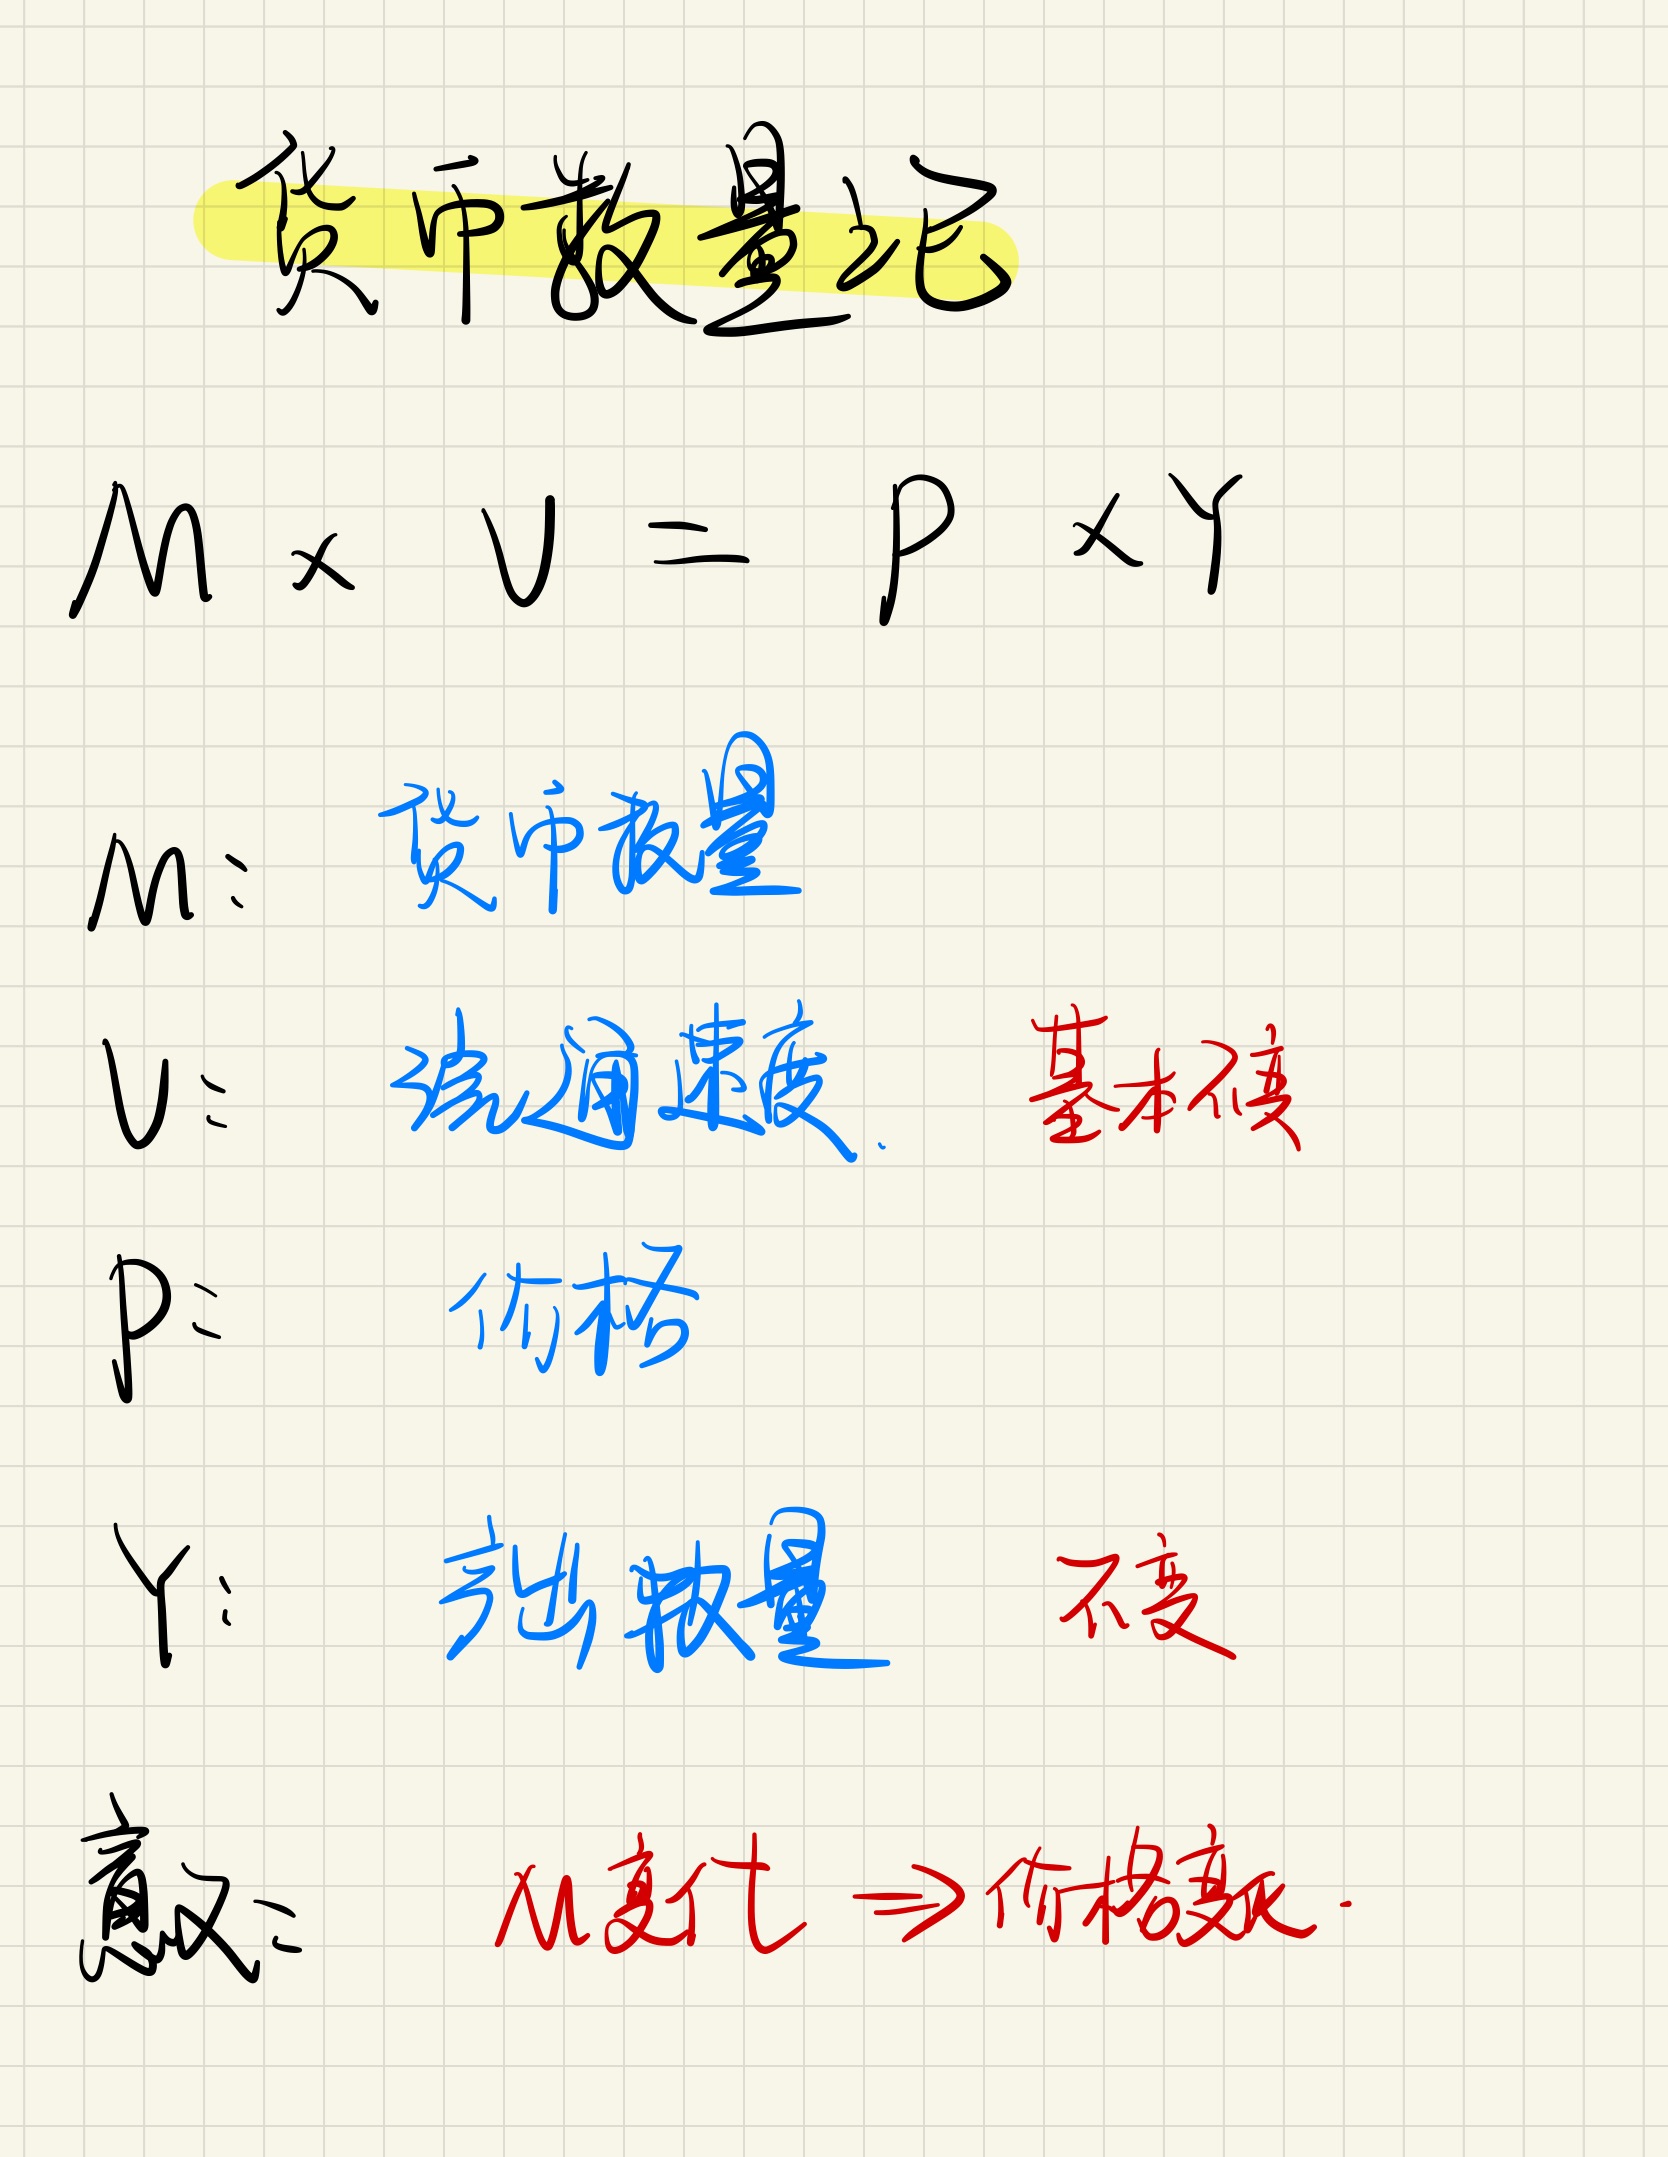 货币数量论
M × V = P × Y
M: 货币数量
V: 流通速度. 基本不变
P: 价格
Y: 产出数量 不变
意义: M变化 ⇒ 价格变化.